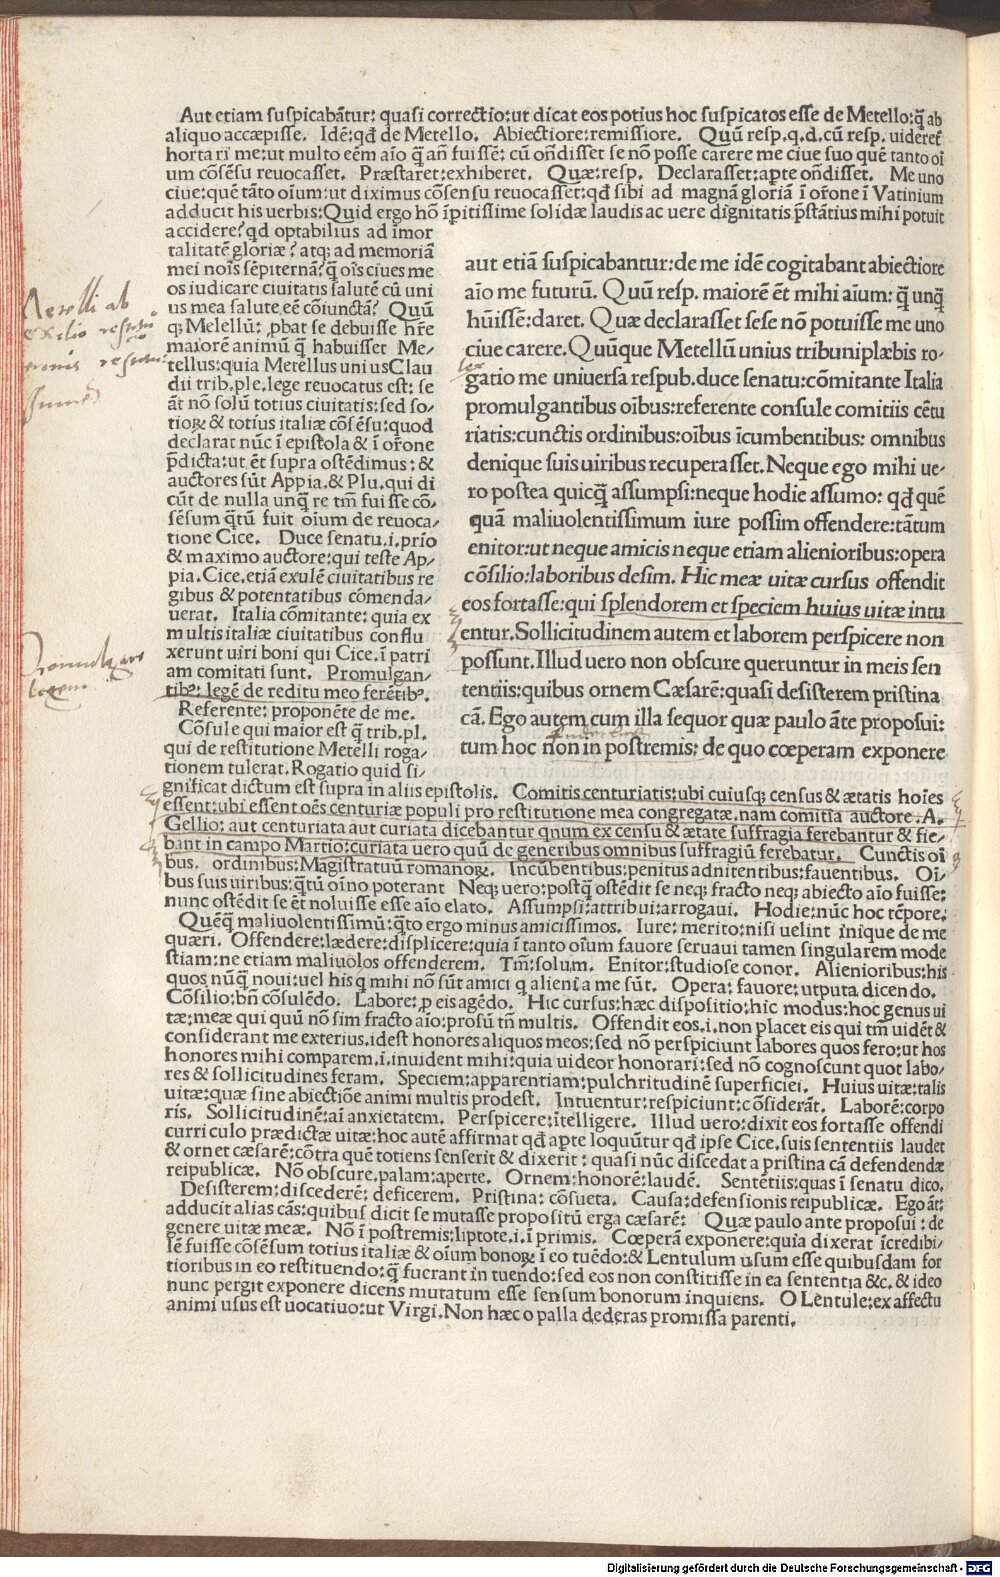 Aut etiam suspicabãtur: quasi correctio: ut dicat eos potius hoc suspicatos esse de Metello: q̃ ab
aliquo accæpisse. Idē: qđ de Metello. Abiectiore: remissiore. Quū resp. q. d. cū resp. uideret̃
horta ri me: ut multo eēm aĩo q̃ añ fuissē: cū oñdisset se nõ posse carere me ciue suo quē tanto oĩ
um cõsēsu reuocasset. Præstaret: exhiberet. Quæ: resp. Declarasset: apte oñdisset. Me uno
ciue: quē tãto oĩum: ut diximus cõsensu reuocasset: qđ sibi ad magnã gloriã ĩ or̃one ĩ Vatinium
adducit his uerbis: Quid ergo hõ ĩpitissime solidæ laudis ac uere dignitatis p̃stãtius mihi potuit
accidere? qđ optabilius ad ĩmor
talitatē gloriæ? atq; ad memoriã
mei noĩs sēpiternã? q̃ oĩs ciues me
os iudicare ciuitatis salutē cū uni
us mea salute eē cõiunctã? Quū
q; Melellū: ꝓbat se debuisse hr̃e
maiorē animū q̃ habuisset Me-
tellus: quia Metellus uni us Clau
dii trib. ple. lege reuocatus est: se
ãt nõ solū totius ciuitatis: sed so-
tioꝝ & totius italiæ cõsēsu: quod
declarat nūc ĩ epistola & ĩ or̃one
p̃dicta: ut ēt supra ostēdimus: &
auctores sūt Appia. & Plu. qui di
cūt de nulla unq̃ re tm̃ fuisse cõ-
sēsum q̃tū fuit oĩum de reuoca-
tione Cice. Duce senatu. i. prio
& maximo auctore: qui teste Ap-
pia. Cice. etiã exulē ciuitatibus re
gibus & potentatibus cõmenda-
uerat. Italia cõmitante: quia ex
multis italiæ ciuitatibus conflu
xerunt uiri boni qui Cice. ĩ patri
am comitati sunt. Promulgan-
tibꝰ: legē de reditu meo ferētibꝰ.
Referente: proponēte de me.
Cõsule qui maior est q̃ trib. pl.
qui de restitutione Metelli roga-
tionem tulerat. Rogatio quid si-
aut etiã suspicabantur: de me idē cogitabant abiectiore
aĩo me futurū. Quū resp. maiorē ēt mihi aĩum: q̃ unq̃
hūissē: daret. Quæ declarasset sese nõ potuisse me uno
ciue carere. Quūque Metellū unius tribuni plæbis ro-
gatio me uniuersa respub. duce senatu: cõmitante Italia
promulgantibus oĩbus: referente consule comitiis cētu
riatis: cunctis ordinibus: oĩbus ĩcumbentibus: omnibus
denique suis uiribus recuperasset. Neque ego mihi ue-
ro postea quicq̃ assumpsi: neque hodie assumo: qđ quē
quã maliuolentissimum iure possim offendere: tãtum
enitor: ut neque amicis neque etiam alienioribus: opera
cõsilio: laboribus desim. Hic meæ uitæ cursus offendit
eos fortasse: qui splendorem et speciem huius uitæ intu
entur. Sollicitudinem autem et laborem perspicere non
possunt. Illud uero non obscure queruntur in meis sen
tentiis: quibus ornem Cæsarē: quasi desisterem pristina
cã. Ego autem cum illa sequor quæ paulo ãte proposui:
tum hoc non in postremis: de quo cœperam exponere
gnificat dictum est supra in aliis epistolis. Comitis centuriatis: ubi cuiusq; census & ætatis hoĩes
essent: ubi essent oēs centuriæ populi pro restitutione mea congregatæ. nam comitia auctore. A.
Gellio: aut centuriata aut curiata dicebantur qnum ex censu & ætate suffragia ferebantur & fie-
bant in campo Martio: curiata uero quū de generibus omnibus suffragiū ferebatur. Cunctis oĩ
bus. ordinibus: Magistratuū romanoꝝ. Incūbentibus: penitus adnitentibus: fauentibus. Oĩ-
bus suis uiribus: q̃tū oĩno poterant Neq; uero: postq̃ ostēdit se neq; fracto neq; abiecto aĩo fuisse:
nunc ostēdit se ēt noluisse esse aĩo elato. Assumpsi: attribui: arrogaui. Hodie: nūc hoc tēpore.
Quēq̃ maliuolentissimū: q̃to ergo minus amicissimos. Iure: merito: nisi uelint inique de me
quæri. Offendere: lædere: displicere: quia ĩ tanto oĩum fauore seruaui tamen singularem mode
stiam: ne etiam maliuolos offenderem. Tm̃: solum. Enitor: studiose conor. Alienioribus: his
quos nūq̃ noui: uel his q̃ mihi nõ sūt amici q̃ alieni a me sūt. Opera: fauore: utputa dicendo.
Cõsilio: bñ cõsulēdo. Labore: ꝓ eis agēdo. Hic cursus: hæc dispositio: hic modus: hoc genus ui
tæ: meæ qui quū nõ sim fracto aĩo: prosū tñ multis. Offendit eos. i. non placet eis qui tm̃ uidēt &
considerant me exterius. idest honores aliquos meos: sed nõ perspiciunt labores quos fero: ut hos
honores mihi comparem. i. inuident mihi: quia uideor honorari: sed nõ cognoscunt quot labo-
res & sollicitudines feram. Speciem: apparentiam: pulchritudinē superficiei. Huius uitæ: talis
uitæ: quæ sine abiectiõe animi multis prodest. Intuentur: respiciunt: cõsiderãt. Laborē: corpo
ris. Sollicitudinē: aĩ anxietatem. Perspicere: ĩtelligere. Illud uero: dixit eos fortasse offendi
curri culo prædictæ uitæ: hoc autē affirmat qđ apte loquūtur qđ ipse Cice. suis sententiis laudet
& ornet cæsarē: cõtra quē totiens senserit & dixerit: quasi nūc discedat a pristina cã defendendæ
reipublicæ. Nõ obscure. palam: aperte. Ornem: honorē: laudē. Sentētiis: quas ĩ senatu dico.
Desisterem: discederē: deficerem. Pristina: cõsueta. Causa: defensionis reipublicæ. Ego ãt:
adducit alias cãs: quibus dicit se mutasse propositū erga cæsarē: Quæ paulo ante proposui: de
genere uitæ meæ. Nõ ĩ postremis: liptote. i. ĩ primis. Cœperã exponere: quia dixerat ĩcredibi-
lē fuisse cõsēsum totius italiæ & oĩum bonoꝝ ĩ eo tuēdo: & Lentulum usum esse quibusdam for
tioribus in eo restituendo: q̃ fuerant in tuendo: sed eos non constitisse in ea sententia &c. & ideo
nunc pergit exponere dicens mutatum esse sensum bonorum inquiens. O Lentule: ex affectu
animi usus est uocatiuo: ut Virgi. Non hæc o palla dederas promissa parenti.
Metelli ab
exilio
Promulgare
legem
Digitalisierung gefördert durch die Deutsche Forschungsgemeinschaft - DFG